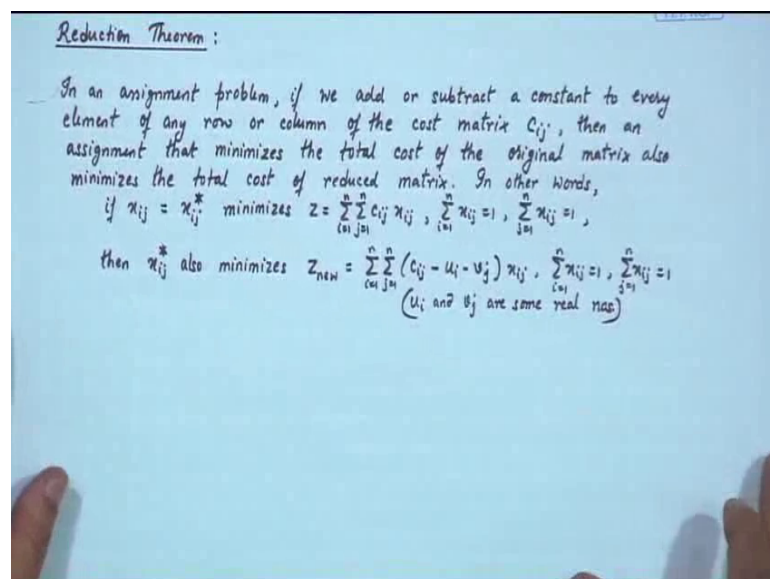 Reduction Theorem :
In an assignment problem, if we add or subtract a constant to every
element of any row or column of the cost matrix Cij, then an
assignment that minimizes the total cost of the original matrix also
minimizes the total cost of reduced matrix. In other words,
if xij = x*ij minimizes Z = ∑ⁿᵢ₌₁ ∑ⁿⱼ₌₁ cij xij , ∑ⁿᵢ₌₁ xij = 1 , ∑ⁿⱼ₌₁ xij = 1 ,
then x*ij also minimizes Znew = ∑ⁿᵢ₌₁ ∑ⁿⱼ₌₁ (cij - ui - vj) xij , ∑ⁿᵢ₌₁ xij = 1 , ∑ⁿⱼ₌₁ xij = 1
(ui and vj are some real nos)